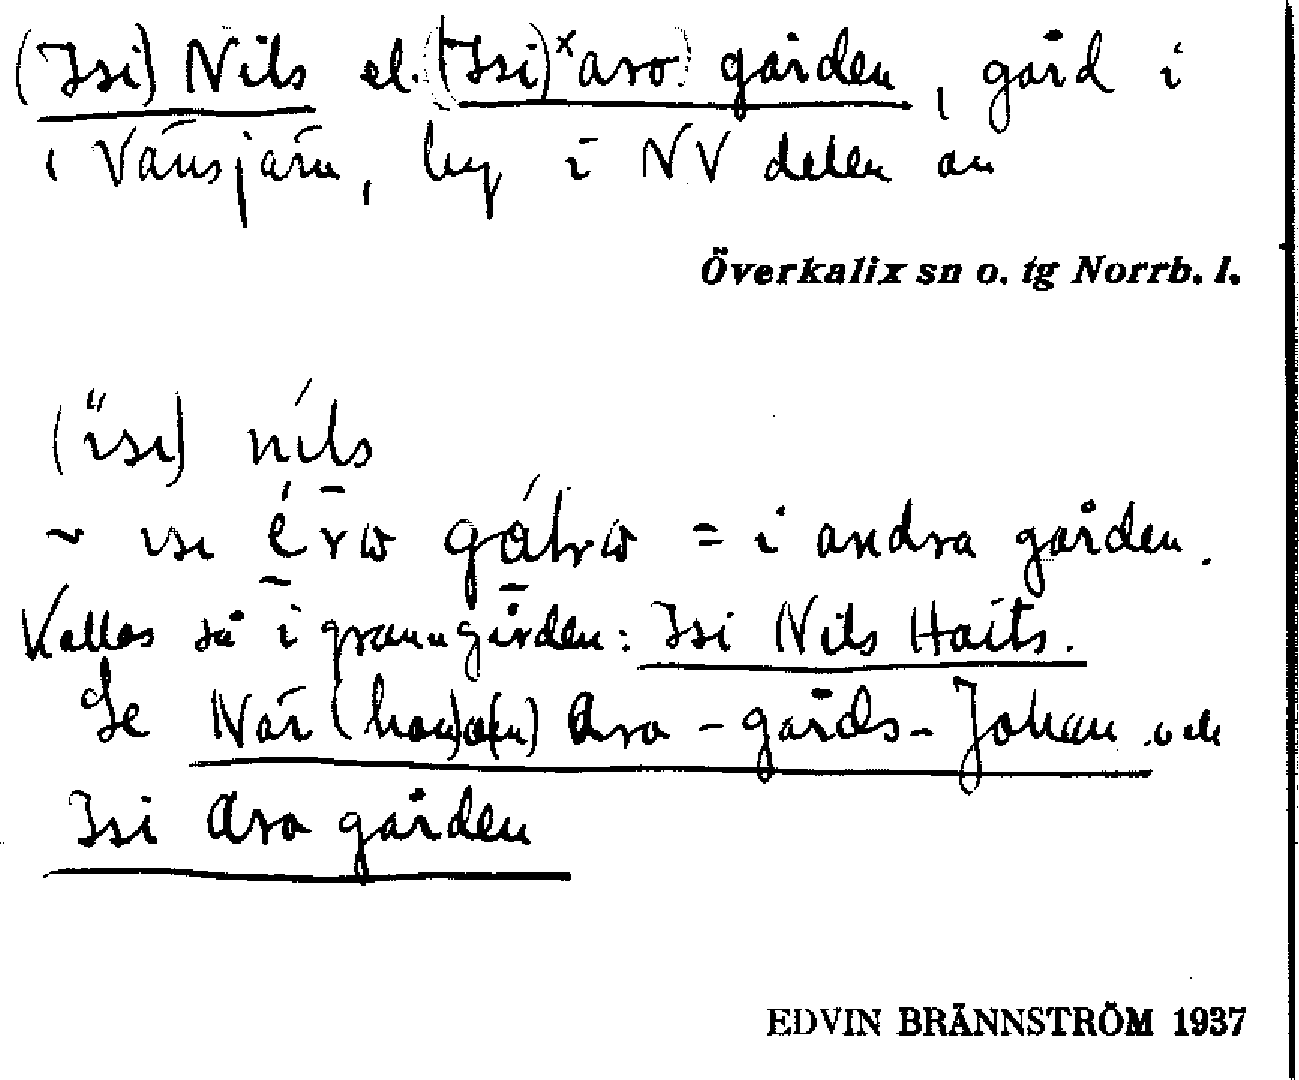 (Isi) Nils el. (Isi) ˣaro gården, gård i
i Vänsjärn, by i NV delen av
Överkalix sn o. tg Norrb. l.
(ìsi) níls
~ ısı gå = i andra gården.
Kallas så i granngården: Isi Nils Haits.
Se När (han) a(n) Aro-gårds-Johan och
Isi Aro gården
EDVIN BRÄNNSTRÖM 1937